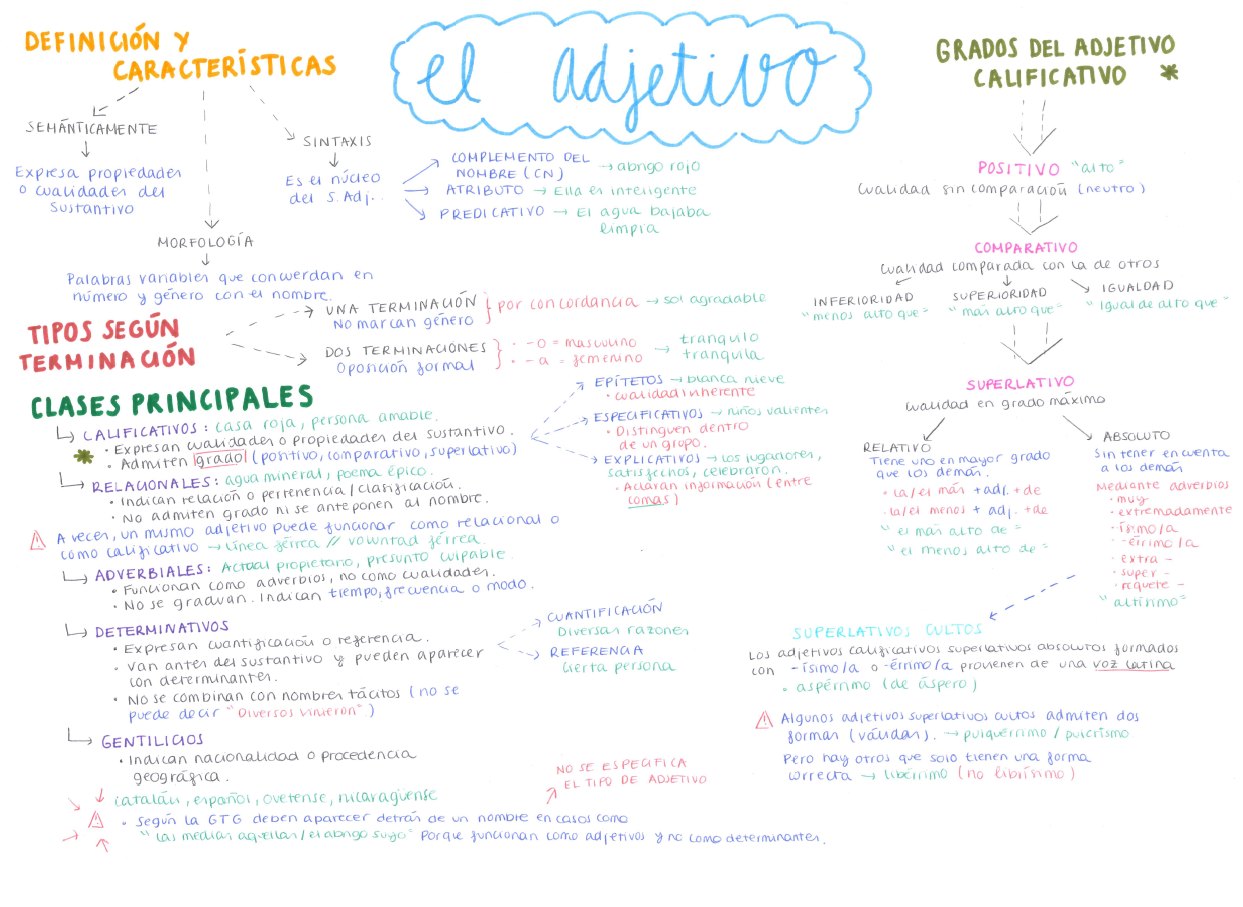 el adjetivo
DEFINICIÓN Y
CARACTERÍSTICAS
SEMÁNTICAMENTE
Expresa propiedades
o cualidades del
sustantivo
MORFOLOGÍA
Palabras variables que concuerdan en
número y género con el nombre.
SINTAXIS
Es el núcleo
del S. Adj.
COMPLEMENTO DEL
NOMBRE (CN) → abrigo rojo
ATRIBUTO → Ella es inteligente
PREDICATIVO → El agua bajaba
limpia
TIPOS SEGÚN
TERMINACIÓN
UNA TERMINACIÓN
No marcan género
por concordancia → sol agradable
DOS TERMINACIONES
Oposición formal
· -o = masculino
· -a = femenino
→ tranquilo
tranquila
CLASES PRINCIPALES
CALIFICATIVOS: casa roja, persona amable.
· Expresan cualidades o propiedades del sustantivo.
* · Admiten grado (positivo, comparativo, superlativo)
EPÍTETOS → blanca nieve
· cualidad inherente
ESPECIFICATIVOS → niños valientes
· Distinguen dentro
de un grupo.
EXPLICATIVOS → Los jugadores,
satisfechos, celebraron.
· Aclaran información (entre
comas)
RELACIONALES: agua mineral, poema épico.
· Indican relación o pertenencia / clasificación.
· No admiten grado ni se anteponen al nombre.
A veces, un mismo adjetivo puede funcionar como relacional o
como calificativo → línea férrea // voluntad férrea.
ADVERBIALES: Actual propietario, presunto culpable.
· Funcionan como adverbios, no como cualidades.
· No se gradúan. Indican tiempo, frecuencia o modo.
DETERMINATIVOS
· Expresan cuantificación o referencia.
· Van antes del sustantivo y pueden aparecer
con determinantes.
· No se combinan con nombres tácitos (no se
puede decir "Diversos vinieron")
CUANTIFICACIÓN
Diversas razones
REFERENCIA
Cierta persona
GENTILICIOS
· Indican nacionalidad o procedencia
geográfica.
catalán, español, ovetense, nicaragüense
NO SE ESPECIFICA
EL TIPO DE ADJETIVO
· Según la GTG deben aparecer detrás de un nombre en casos como
"las medias aquellas / el abrigo suyo" Porque funcionan como adjetivos y no como determinantes.
GRADOS DEL ADJETIVO
CALIFICATIVO *
POSITIVO "alto"
Cualidad sin comparación (neutro)
COMPARATIVO
Cualidad comparada con la de otros
INFERIORIDAD
"menos alto que"
SUPERIORIDAD
"más alto que"
IGUALDAD
"igual de alto que"
SUPERLATIVO
Cualidad en grado máximo
RELATIVO
Tiene uno en mayor grado
que los demás.
· la/el más + adj. + de
· la/el menos + adj. + de
"el más alto de"
"el menos alto de"
ABSOLUTO
Sin tener en cuenta
a los demás
Mediante adverbios
· muy
· extremadamente
· -ísimo/a
· -érrimo/a
· extra-
· super-
· requete-
"altísimo"
SUPERLATIVOS CULTOS
Los adjetivos calificativos superlativos absolutos formados
con -ísimo/a o -érrimo/a provienen de una voz latina
· aspérrimo (de áspero)
Algunos adjetivos superlativos cultos admiten dos
formas (válidas). → pulquérrimo / pulcrísimo
Pero hay otros que solo tienen una forma
correcta → libérrimo (no librísimo)